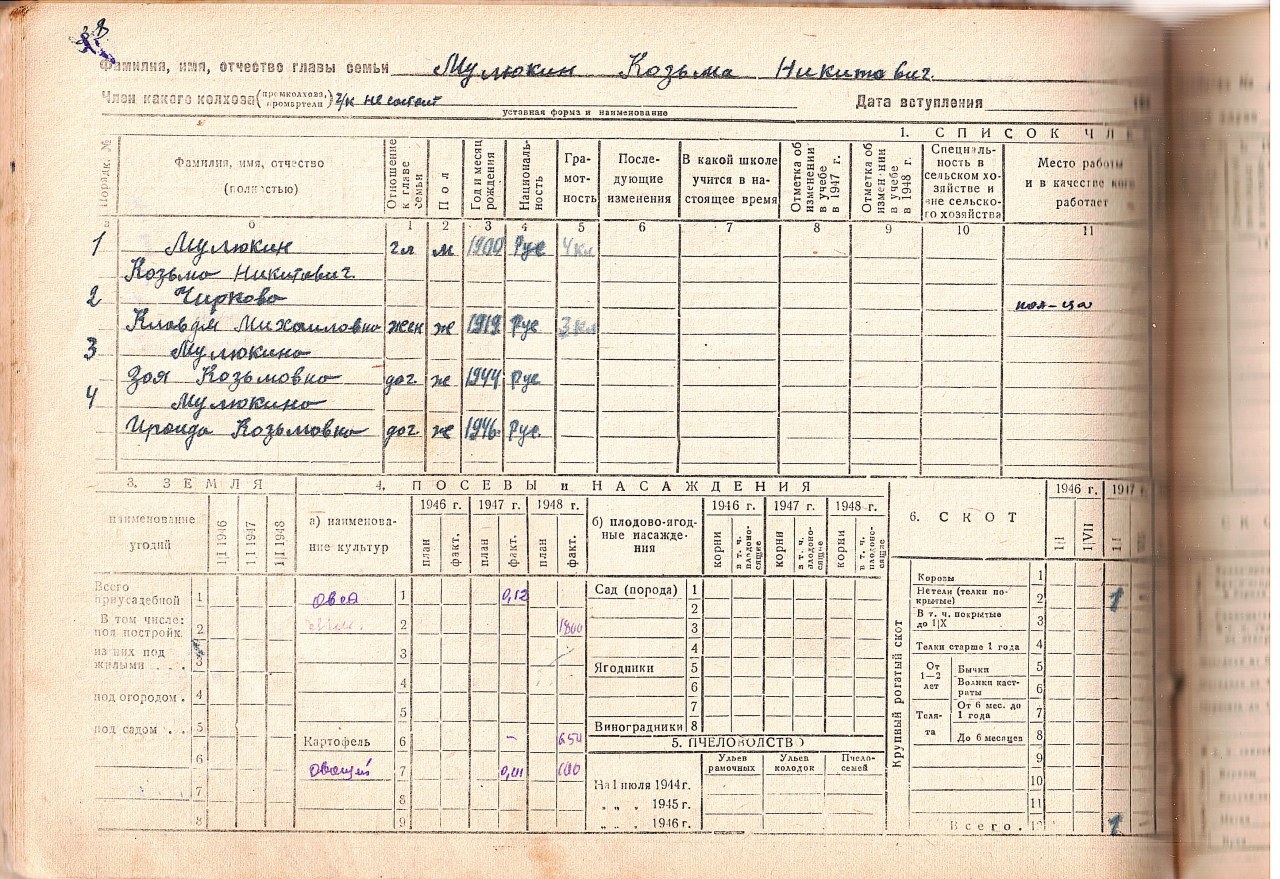 Фамилия, имя, отчество главы семьи Мулюкин Козьма Никитович.
Член какого колхоза (промколхоза, промартели) ч/к не состоит Дата вступления
уставная форма и наименование
1. СПИСОК ЧЛЕ
Порядк. № Фамилия, имя, отчество (полностью) Отношение к главе семьи Пол Год и месяц рождения Националь-ность Гра-мот-ность После-дующие изменения В какой школе учится в на-стоящее время Отметка об изменении в учебе в 1947 г. Отметка об изменении в учебе в 1948 г. Специаль-ность в сельском хо-зяйстве и вне сельско-го хозяйства Место работы и в качестве кого работает
б 1 2 3 4 5 6 7 8 9 10 11
1 Мулюкин гл м 1900 Рус 4 кл
Козьма Никитович.
2 Чиркова
Клавдия Михайловна жен ж 1919 Рус 3 кл
3 Мулюкина
Зоя Козьмовна доч. ж 1944 Рус
4 Мулюкина
Ираида Козьмовна доч. ж 1946 Рус.
3. ЗЕМЛЯ
наименование угодий 1|I 1946 1|I 1947 1|I 1948
Всего приусадебной 1
В том числе: под постройк. 2
из них под жилыми . . . 3
под огородом . 4
под садом . . 5
6
7
8
4. ПОСЕВЫ и НАСАЖДЕНИЯ
а) наименова-ние культур 1946 г. 1947 г. 1948 г.
план факт. план факт. план факт.
1 0,12
2 1800
3
4
5
Картофель 6 –
7 0,01 100
8
9
б) плодово-ягод-ные насажде-ния 1946 г. 1947 г. 1948 г.
корни в т. ч. плодоно-сящие корни в т. ч. плодоно-сящие корни в т. ч. плодоно-сящие
Сад (порода) 1
2
3
4
Ягодники 5
6
7
Виноградники 8
5. ПЧЕЛОВОДСТВО
Ульев рамочных Ульев колодок Пчело-семей
На 1 июля 1944 г.
„ „ „ 1945 г.
„ „ „ 1946 г.
6. СКОТ 1946 г. 1947
1|I 1|VII 1|I
Крупный рогатый скот
Коровы 1
Нетели (телки по-крытые) 2 1
В т. ч. покрытые до 1|IX 3
Телки старше 1 года 4
От 1—2 лет Бычки 5
Волики каст-раты 6
Теля-та От 6 мес. до 1 года 7
До 6 месяцев 8
9
10
11
Всего . 12 1